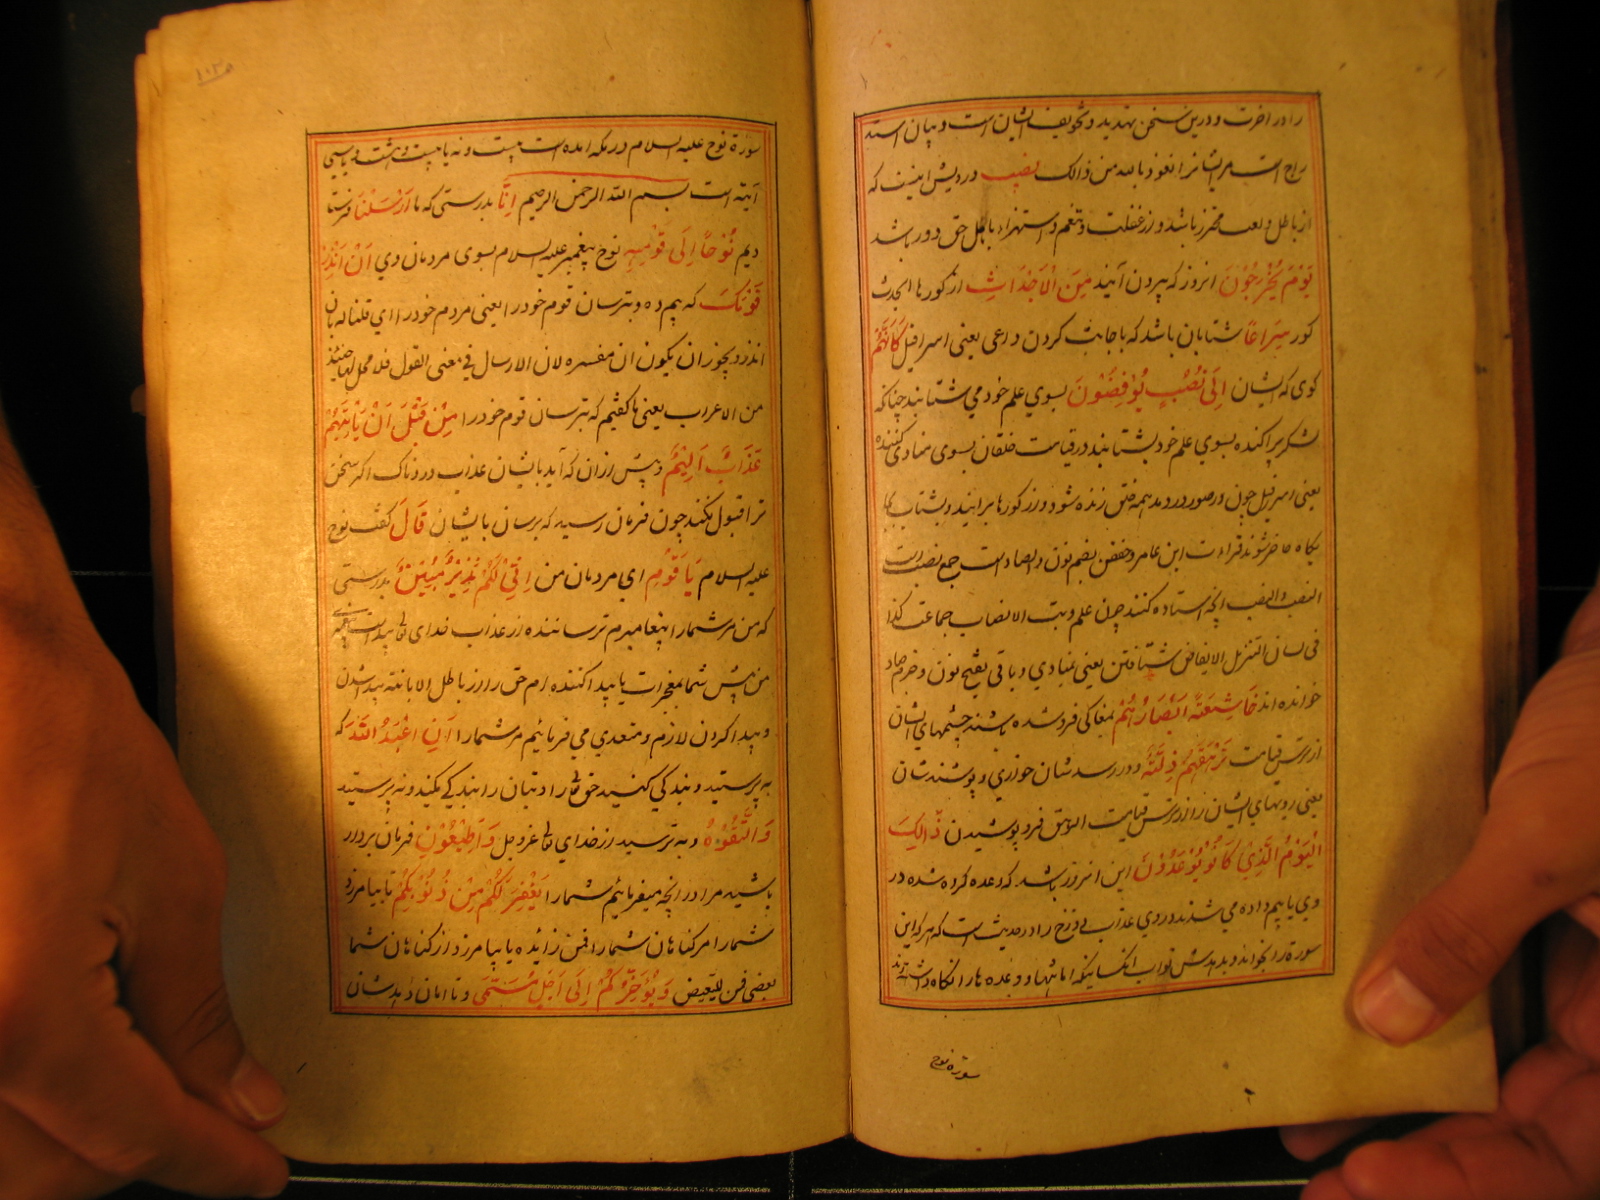 را در آخرت و درین سخن تهدید و تخویف ایشان است و بیان
است مر ایشانرا نعوذ بالله من ذالک نصیب درویش اینست که
از باطل و لعب محترز باشد و از غفلت و تنعم و استهزاء باهل حق دور باشد
یَوْمَ یَخْرُجُوْنَ انروز که بیرون آیند مِنَ الْاَجْدَاثِ از کورها الجدث
کور سِرَاعًا شتابان باشد که باجابت کردن داعی یعنی اسرافیل کَاَنَّهُمْ
کوی که ایشان اِلٰی نُصُبٍ یُوْفِضُوْنَ بسوی علم خود می شتابند چنانکه
لشکر پراکنده بسوی علم خود بشتابند در قیامت خلقان بسوی منادی کننده
یعنی اسرافیل چون در صور دردمد همه خلق زنده شود و از کورها برایند و بشتاب
حاضر شوند قراءت ابن عامر و حفص بضم نون و الصاد است جمع نصب
النصب و النصب انچه استاده کنند چون علم و بت الانصاب جماعت کذا
فی لسان التنزیل الایفاض شتافتن یعنی بمنادی و باقی بفتح نون و جزم صاد
خوانده اند خَاشِعَةً اَبْصَارُهُمْ بمغاکی فرو شده باشند چشمهای ایشان
از ترس قیامت تَرْهَقُهُمْ ذِلَّةٌ و در رسدشان خواری و بپوشندشان
یعنی رویهای ایشان را از ترس قیامت الرهق فرو پوشیدن ذٰالِکَ
الْیَوْمُ الَّذِیْ کَانُوْ یُوْعَدُوْنَ این انروز باشد که وعده کرده شده در
وی یا بیم داده می شدند در وی عذاب دوزخ را در حدیث است که هر که این
سورة را بخواند و بدهدش ثواب انکسانیکه امانتها و وعده ها را نکاه داشته اند
سورة نوح
سورة نوح علیه السلام در مکه آمده است بیست و نه یا بیست و هشت و یا سی
آیة است بسم الله الرحمن الرحیم اِنَّا بدرستی که ما اَرْسَلْنَا فرستا
دیم نُوْحًا اِلٰی قَوْمِهٖ نوح پیغمبر علیه السلام بسوی مردمان وی اَنْ اَنْذِرْ
قَوْمَکَ که بیم ده و بترسان قوم خود را یعنی مردم خود را ای قلنا له بان
انذر و یجوز ان یکون ان مفسره لان الارسال فی معنی القول فلا محل لها حینئذ
من الاعراب یعنی ما کفتیم که بترسان قوم خود را مِنْ قَبْلِ اَنْ یَاْتِیَهُمْ
عَذَابٌ اَلِیْمٌ و پیش ازان که آید بایشان عذاب دردناک اکر سخن
ترا قبول نکنند چون فرمان رسید که برسان بایشان قَالَ کفت نوح
علیه السلام یَا قَوْمِ ای مردمان من اِنِّیْ لَکُمْ نَذِیْرٌ مُّبِیْنٌ بدرستی
که من مر شمارا پیغامبرم ترساننده از عذاب خدای تعالی
من پیش شما بمعجزات یا پیدا کننده ام حق را از باطل الابانته پیدا شدن
و پیدا کردن لازم و متعدی می فرمایم مر شمارا اَنِ اعْبُدُ اللّٰهَ که
به پرستید و بندکی کنید حق تعالی را و بتان را بندکی نکنید و نه پرستید
وَاتَّقُوْهُ و به ترسید از خدای تعالی عز و جل وَاَطِیْعُوْنِ فرمان بردار
باشید مرا در انچه میفرمایم شمارا یَغْفِرْ لَکُمْ مِنْ ذُنُوْبِکُمْ تا بیامرزد
شمارا مر کناهان شمارا فمن زائده یا بیامرزد از کناهان شما
بعضی فمن للتبعیض وَیُؤَخِّرْکُمْ اِلٰی اَجَلٍ مُّسَمًّی و تا امان دهدشان